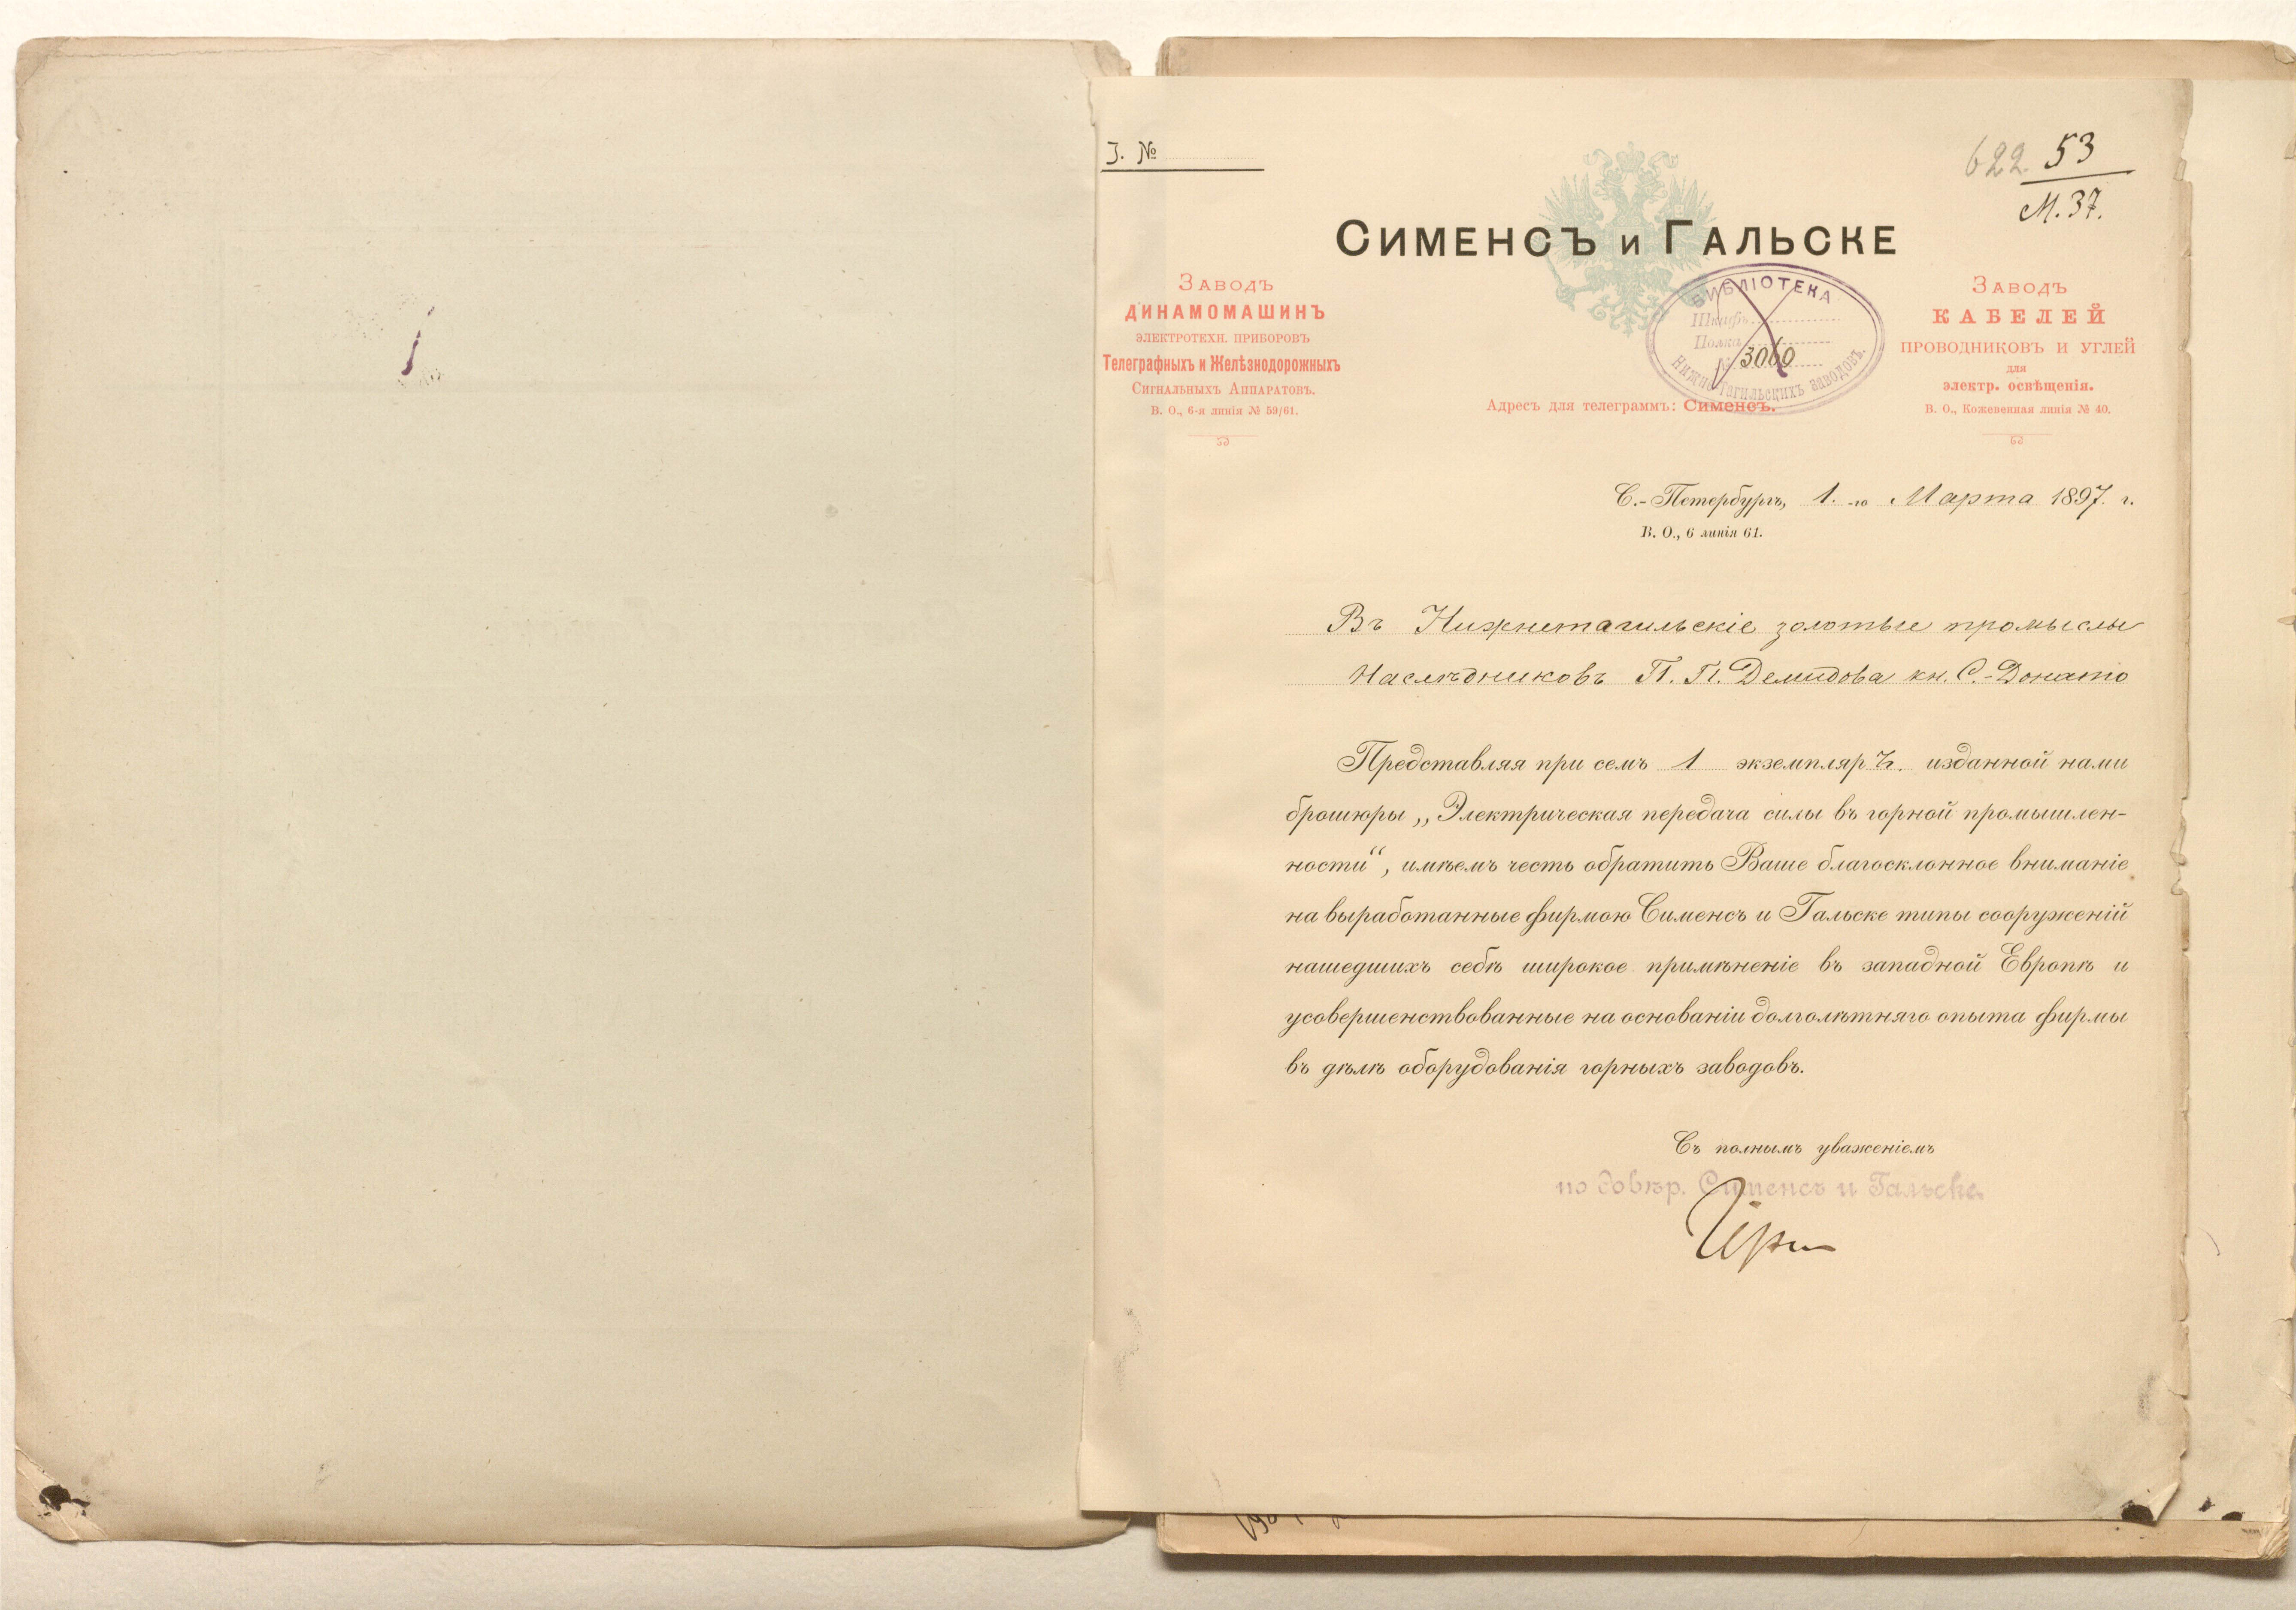 J. №
622. 53
М. 37.
Сименсъ и Гальске
Заводъ
динамомашинъ
электротехн. приборовъ
Телеграфныхъ и Желѣзнодорожныхъ
Сигнальныхъ Аппаратовъ.
В. О., 6-я линія № 59/61.
БИБЛІОТЕКА
Шкафъ
Полка
№ 3060
Нижне-Тагильскихъ заводовъ.
Адресъ для телеграммъ: Сименсъ.
Заводъ
кабелей
проводниковъ и углей
для
электр. освѣщенія.
В. О., Кожевенная линія № 40.
С.-Петербургъ, 1.-го Марта 1897. г.
В. О., 6 линія 61.
Въ Нижнетагильскіе золотые промыслы
Наслѣдниковъ П. П. Демидова кн. С.-Донато
Представляя при семъ 1 экземпляръ. изданной нами
брошюры „Электрическая передача силы въ горной промышлен-
ности“, имѣемъ честь обратить Ваше благосклонное вниманіе
на выработанные фирмою Сименсъ и Гальске типы сооруженій
нашедшихъ себѣ широкое примѣненіе въ западной Европѣ и
усовершенствованные на основаніи долголѣтняго опыта фирмы
въ дѣлѣ оборудованія горныхъ заводовъ.
Съ полнымъ уваженіемъ
по довѣр. Сименсъ и Гальске.